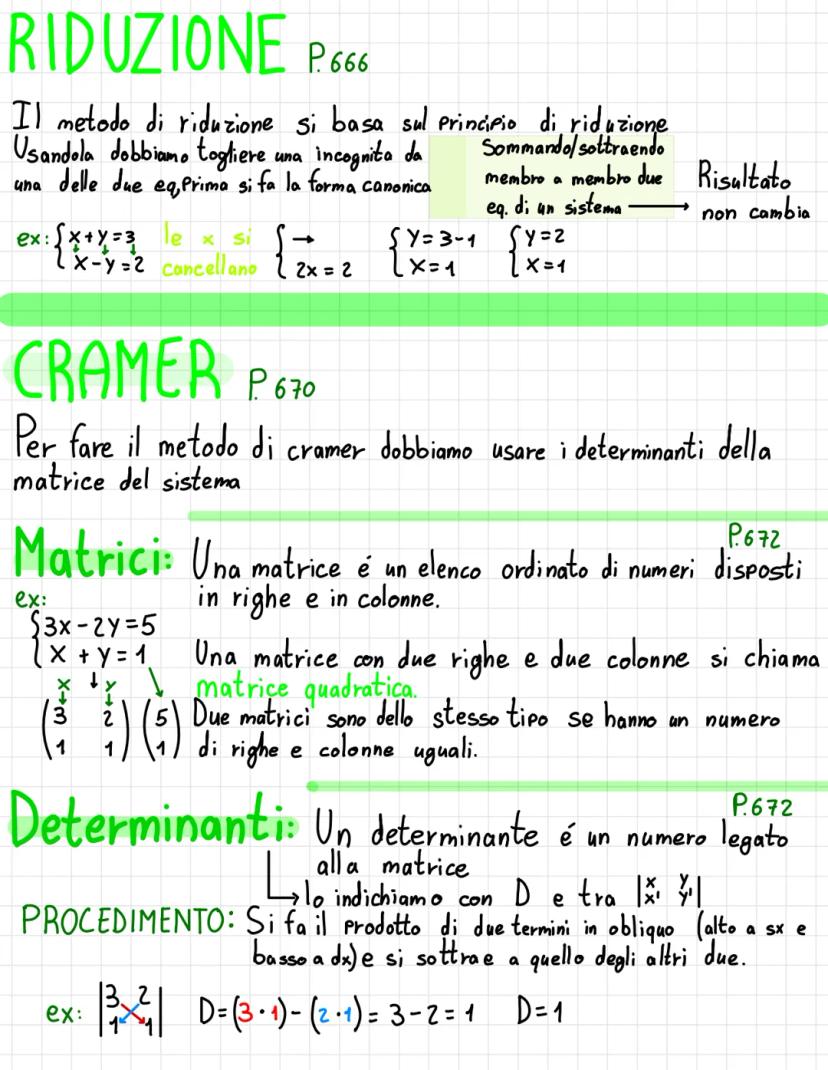 RIDUZIONE P.666
Il metodo di riduzione si basa sul principio di riduzione
Usandola dobbiamo togliere una incognita da
una delle due eq. Prima si fa la forma canonica
Sommando/sottraendo
membro a membro due
eq. di un sistema → Risultato
non cambia
ex: { x+y=3
x-y=2
le x si
cancellano
{ →
2x = 2
{ y=3-1
x=1
{ y=2
x=1
CRAMER P. 670
Per fare il metodo di cramer dobbiamo usare i determinanti della
matrice del sistema
P.672
Matrici: Una matrice é un elenco ordinato di numeri disposti
in righe e in colonne.
ex:
{ 3x-2y=5
x+y=1
x ↓ y
(3 2) (5)
(1 1) (1)
Una matrice con due righe e due colonne si chiama
matrice quadratica.
Due matrici sono dello stesso tipo se hanno un numero
di righe e colonne uguali.
P.672
Determinanti: Un determinante é un numero legato
alla matrice
↳ lo indichiamo con D e tra |x y|
|x' y'|
PROCEDIMENTO: Si fa il prodotto di due termini in obliquo (alto a sx e
basso a dx) e si sottrae a quello degli altri due.
ex: |3 2|
|1 1|
D=(3·1)-(2·1)= 3-2=1 D=1